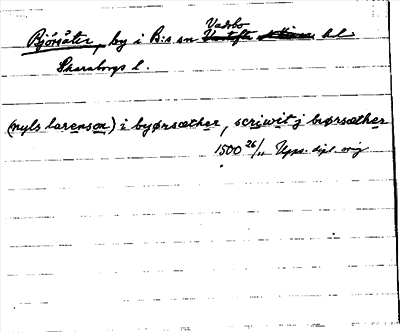 Vadsbo
Björsäter, by i B:s sn hd
Skaraborgs l.
(nyls larenson) i byørsæther, scriwit j brørsæther
1500 26/11 Upps. dipl. orig